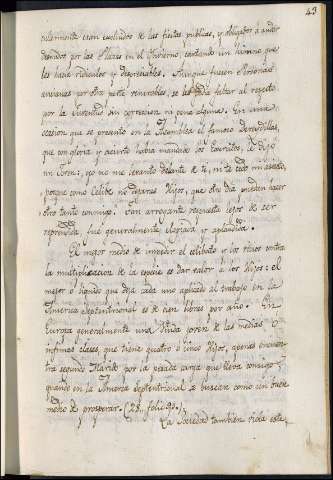 43
cularmente eran excluidos de las fiestas publicas, y obligados á andar
desnudos por las Plazas en el Ymbierno, cantando un himno que
les hacia ridiculos y despreciables. Aunque fuesen Personas
ancianas por otra parte venerables, se les podia faltar al respeto
por la Juventud sin correccion ni pena alguna. En una
ocasion que se presentó en la Asamblea el famoso Dercilidas,
que con gloria y acierto habia mandado los Exercitos, le dijo
un Joven: yo no me levanto delante de ti, ni te cedo mi asiento,
porque como Celibe no dejaras Hijos, que otro dia puedan hacer
otro tanto conmigo. Tan arrogante respuesta lejos de ser
reprendida fue generalmente elogiada y aplaudida.
El mejor medio de impedir el celibato y los vicios contra
la multiplicacion de la especie es dar valor á los hijos: el
mejor
que deja cada uno aplicado al trabajo en la
America Septentrional es de cien libras por año. En
Europa generalmente una Viuda joven de las medias ó
infimas clases, que tiene quatro ó cinco Hijos, apenas encuen-
tra segundo Marido por la pesada carga que lleva consigo;
quando en la America Septentrional se buscan como un buen
medio de prosperar. (28. folio 90.)
La Sociedad tambien viola este